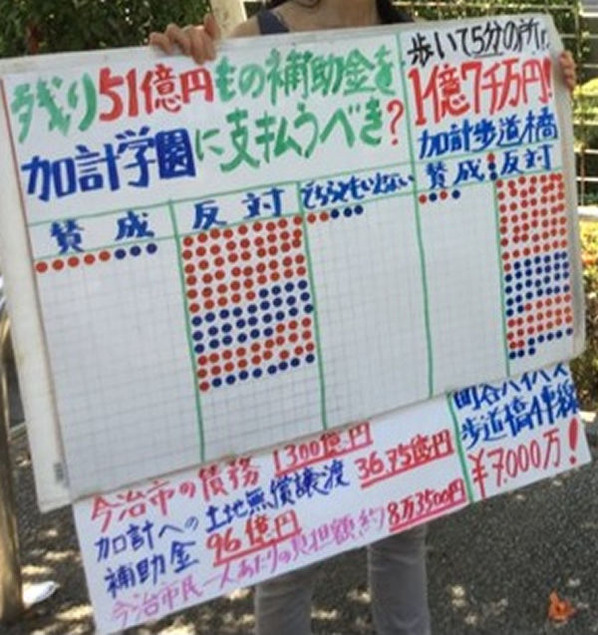 残り51億円もの補助金を
加計学園に支払うべき?
賛成 反対 どちらともいえない
歩いて5分の所に
1億7千万円!
加計歩道橋
賛成 反対
今治市の債務 1300億円
加計への土地無償譲渡 36.75億円
補助金 96億円
今治市民一人あたりの負担額 約8万3500円
歩道橋
¥7,000万!